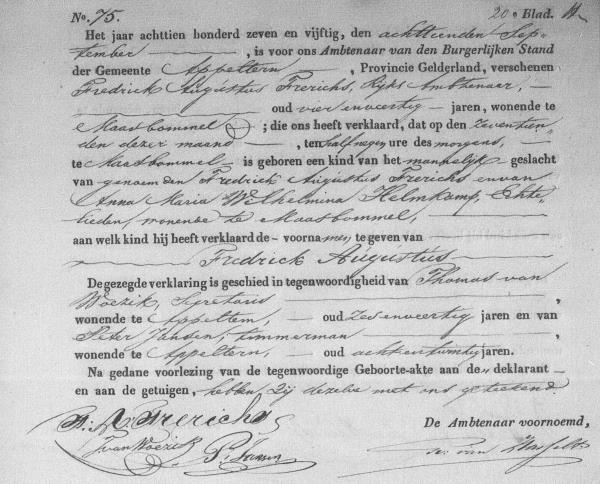 No. 75. 20e Blad.
Het jaar achttien honderd zeven en vijftig, den achttienden Sep-
tember, is voor ons Ambtenaar van den Burgerlijken Stand
der Gemeente Appeltern, Provincie Gelderland, verschenen
Fredrick Augustus Frerichs, Rijks Ambtenaar,
oud vier en veertig jaren, wonende te
Maasbommel; die ons heeft verklaard, dat op den zeventien-
den dezer maand, ten half negen ure des morgens,
te Maasbommel is geboren een kind van het mannelijk geslacht
van genoemden Fredrick Augustus Frerichs en van
Anna Maria Wilhelmina Helmkamp, Echte-
lieden, wonende te Maasbommel,
aan welk kind hij heeft verklaard de voornamen te geven van
Fredrick Augustus
De gezegde verklaring is geschied in tegenwoordigheid van Thomas van
Woezik, Secretaris,
wonende te Appeltern, oud zes en veertig jaren en van
Peter Jansen, timmerman,
wonende te Appeltern, oud acht en twintig jaren.
Na gedane voorlezing van de tegenwoordige Geboorte-akte aan de declarant
en aan de getuigen, hebben zij dezelve met ons geteekend.
F: A: Frerichs
De Ambtenaar voornoemd,
T. van Woezik
P. Jansen